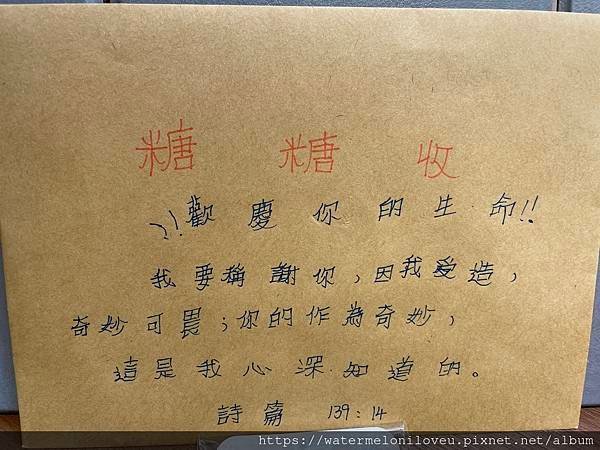 糖糖收
!!歡慶你的生命!!
我要稱謝你,因我受造,
奇妙可畏;你的作為奇妙,
這是我心深知道的。
詩篇 139:14
https://watermeloniloveu.pixnet.net/album